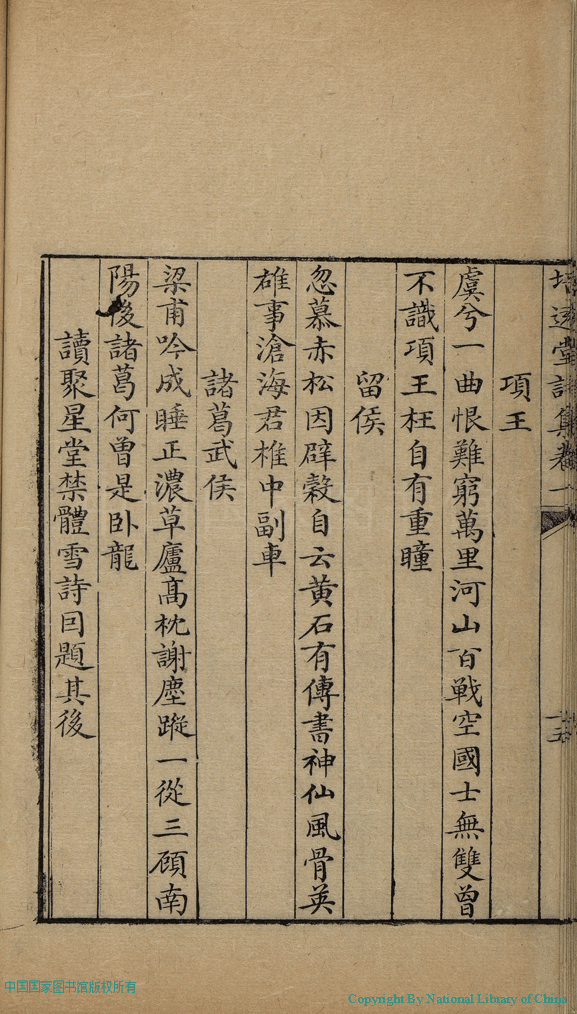 堂詩集卷一
項王
虞兮一曲恨難窮萬里河山百戰空國士無雙曾
不識項王枉自有重瞳
留侯
忽慕赤松因辟穀自云黃石有傳書神仙風骨英
雄事滄海君椎中副車
諸葛武侯
梁甫吟成睡正濃草廬髙枕謝塵蹤一從三顧南
陽後諸葛何曾是卧龍
讀聚星堂禁體雪詩囙題其後
中国国家图书馆版权所有
Copyright By National Library of China